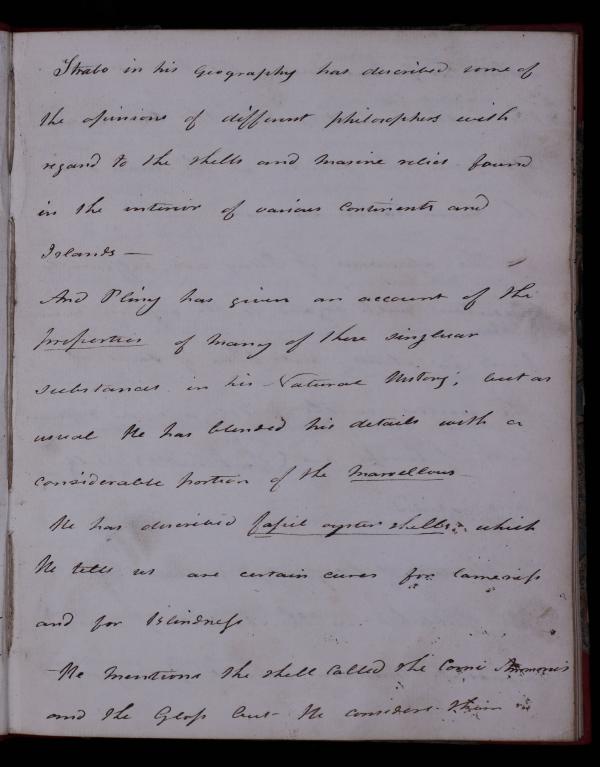 Strabo in his Geography has described some of
the opinions of different philosophers with
regard to the shells and marine relics found
in the interior of various Continents and
Islands —
And Pliny has given an account of the
properties of many of these singluar
substances in his Natural History; but as
usual He has blended his details with a
considerable portion of the marvellous
He has described fossil oyster shells which
He tells us are certain cures for lameness
and for Blindness
He mentions the shell called the Corni Ammonis
and the Gloss but He considers them